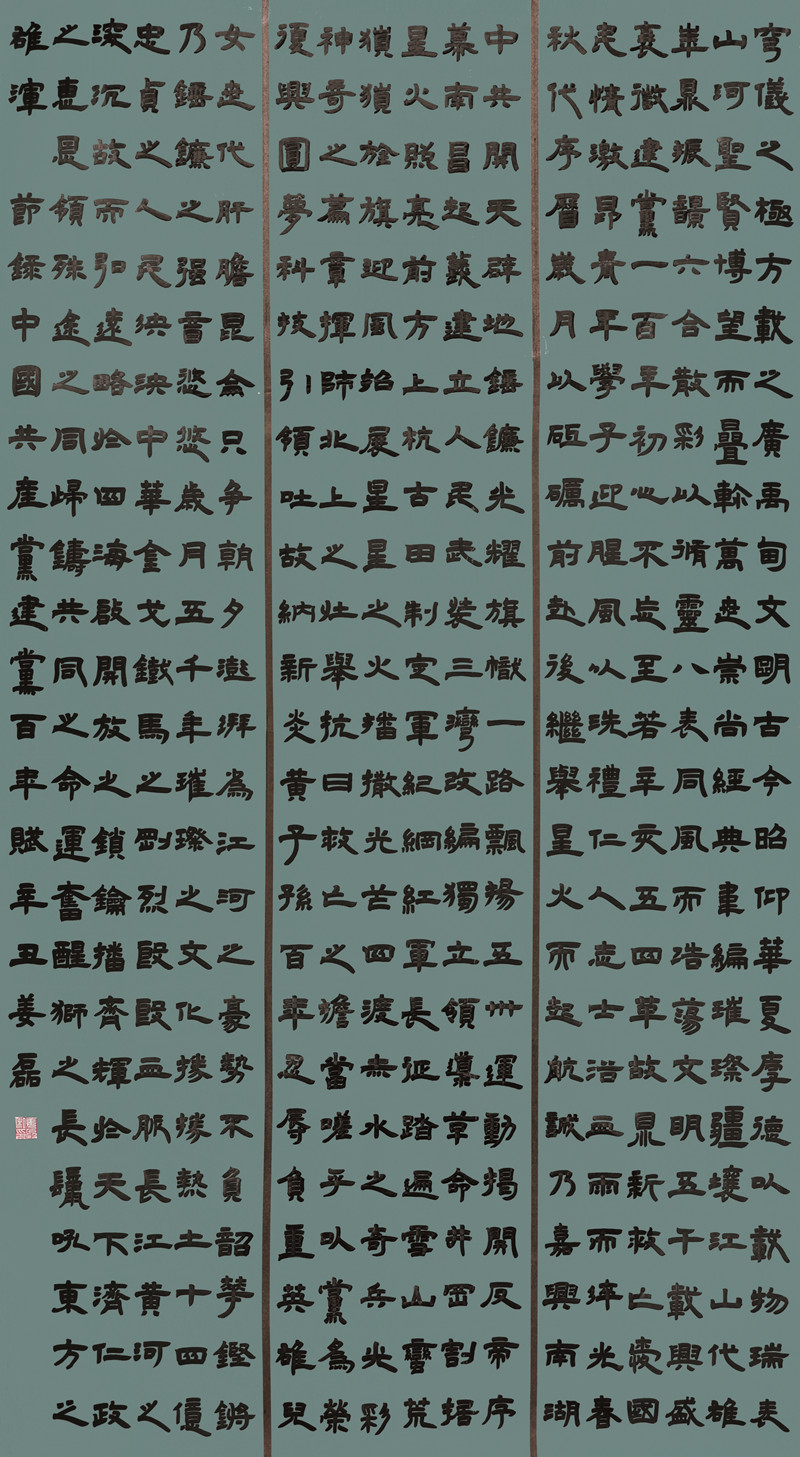 穹儀之極方載之廣禹甸文明古今昭仰華夏厚德以載物瑞表
山河聖賢博望而疊軫萬世崇尚經典聿編璀璨疆壤江山代雄
崋鼎振韻六合散彩以脩靈八表同風而浩蕩文明五千載興盛
衰微建黨一百年初心不忘至若辛亥五四革故鼎新救亡愛國
民情激昂青年學子迎腥風以洗禮仁人志士浴血雨而淬光春
秋代序曆歲月以砥礪前赴後繼舉星火而起航誠乃嘉興南湖
中共開天辟地錘鐮光耀旗幟一路飄揚五卅運動揭開反帝序
幕南昌起義建立人民武裝三灣改編獨立領導革命井岡割据
星火照亮前方上杭古田制定軍紀綱紅軍長征踏遍雪山荒
獵獵旌旗迎風招展星星之火播撒光芒四渡赤水之奇兵光彩
神奇之篇章揮師北上之壯舉抗日救亡之擔當嗟乎以黨為榮
復興圓夢科技引領吐故納新炎黃子孫百年忍辱負重英雄兒
女世代肝膽昆侖只争朝夕澎湃為江河之豪勢不負韶華鏗鏘
乃錘鐮之强音悠悠歲月五千年璀璨之文化熱土十四億
忠貞之人民泱泱中華金戈鐵馬之剛烈殷殷血脈長江黃河之
深沉故而弘遠略於四海啟開放之鎖鑰播齊輝於天下濟仁政
之惠恩領殊途之同歸鑄共同之命運奮醒獅之長鬣吼東方之
雄渾 節錄中國共產黨建黨百年賦辛丑姜磊